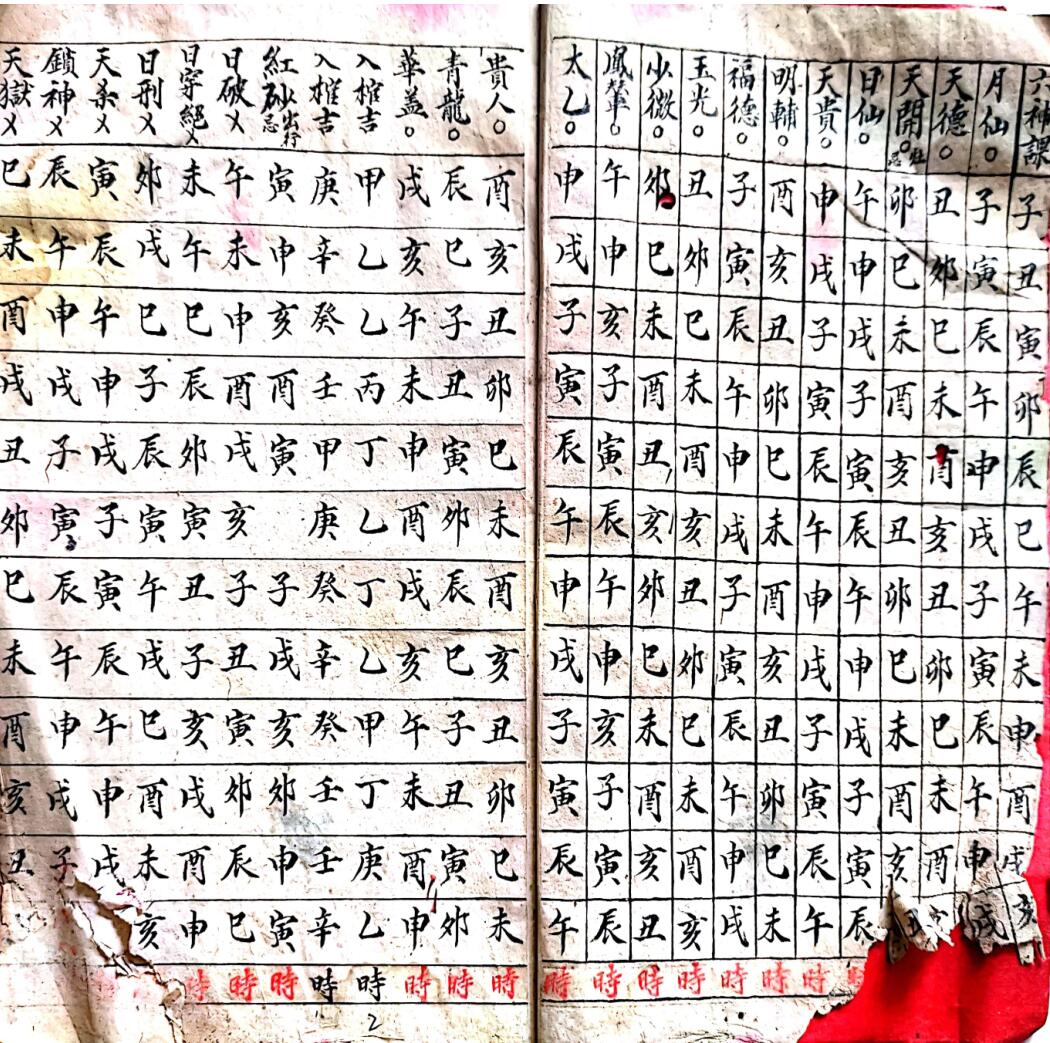 六神課子丑寅卯辰巳午未申酉戌亥
月仙○子寅辰午申戌子寅辰午申戌
天德○丑卯巳未酉亥丑卯巳未酉亥
天開○卯巳未酉亥丑卯巳未酉亥丑
日仙○午申戌子寅辰午申戌子寅辰
天貴○申戌子寅辰午申戌子寅辰午時
明輔○酉亥丑卯巳未酉亥丑卯巳未時
福德○子寅辰午申戌子寅辰午申戌時
玉光○丑卯巳未酉亥丑卯巳未酉亥時
少微○卯巳未酉丑亥卯巳未酉亥丑時
鳳輦○午申亥子寅辰午申亥子寅辰時
太乙○申戌子寅辰午申戌子寅辰午時
貴人○酉亥丑卯巳未酉亥丑卯巳未時
青龍○辰巳子丑寅卯辰巳子丑寅卯時
華蓋○戌亥午未申酉戌亥午未酉申時
入榷吉甲乙乙丙丁乙丁乙甲丁庚乙時
入榷吉庚辛癸壬甲庚癸辛癸壬壬辛時
紅砂出行忌寅申亥酉寅子戌亥卯申寅時
日破㐅午未申酉戌亥子丑寅卯辰巳時
日穿絕㐅未午巳辰卯寅丑子亥戌酉申時
日刑㐅卯戌巳子辰寅午戌巳酉未亥
天杀㐅寅辰午申戌子寅辰午申戌
鎖神㐅辰午申戌子寅辰午申戌子
天獄㐅巳未酉戌丑卯巳未酉亥丑
2